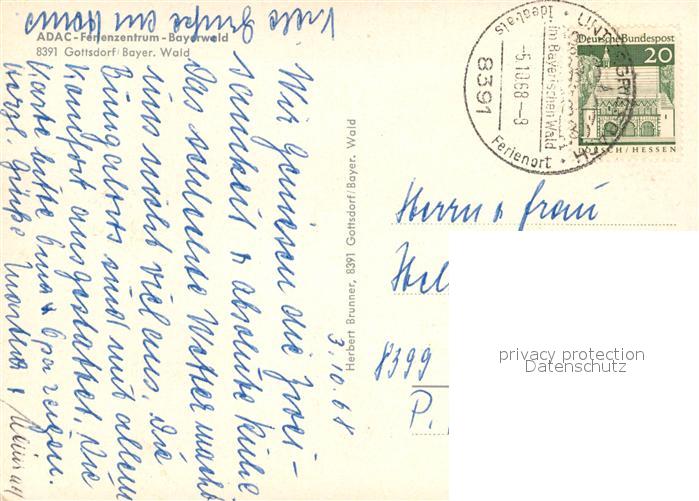 Viele Grüße an
ADAC-Ferienzentrum-Bayerwald
8391 Gottsdorf/Bayer. Wald
3.10.68
Wir geniessen die Zwei-
samkeit & absolute Ruhe
Das schlechte Wetter macht
uns nicht viel aus. Die
Bungalows sind mit allem
Komfort ausgestattet. Die
Karte bitte Oma & Opa zeigen.
Herzl. Grüße &
Herbert Brunner, 8391 Gottsdorf/Bayer. Wald
UNTERGRIESBACH
Idealer
im Bayerischen Wald
-5.10.68-8
8391
Ferienort
Deutsche Bundespost
20
LORSCH/HESSEN
Herrn & Frau
Hel
8399
P.
privacy protection
Datenschutz